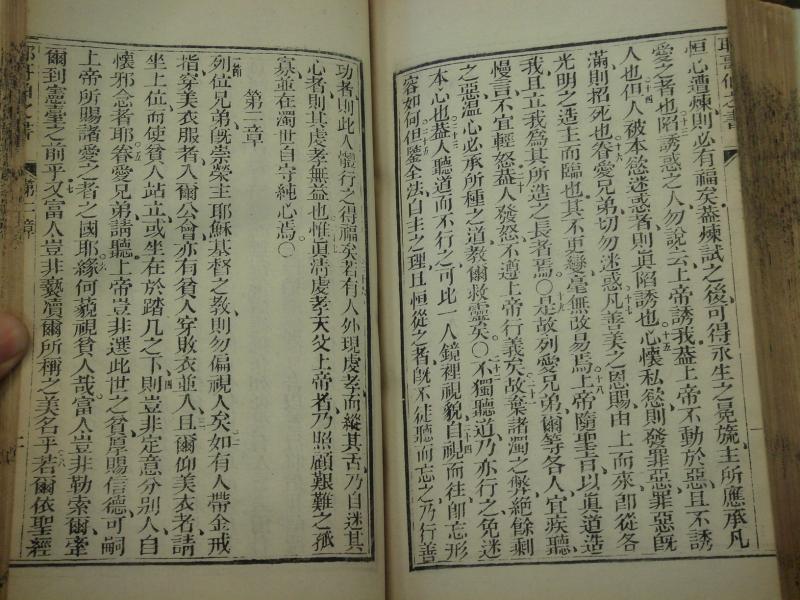 耶哥伯之書
恒心遭煉則必有福矣蓋煉試之後可得永生之冕旒主所應承凡
愛之者也陷誘惑之人勿說云上帝誘我蓋上帝不動於惡且不誘
人也但人被本慾迷惑者則眞陷誘也心懷私慾則發罪惡罪惡旣
滿則招死也眷愛兄弟切勿迷惑凡善美之恩賜由上而來卽從各
光明之造主而臨也其不更變毫無改易焉上帝隨聖旨以眞道造
我且立我爲其所造之長者焉〇是故列愛兄弟爾等各人宜疾聽
慢言不宜輕怒蓋人發怒不遵上帝行義矣故棄諸濁之弊絕餘剩
之惡溫心必承所種之道敎爾救靈矣〇不獨聽道乃亦行之免迷
本心也蓋人聽道而不行之可比一人鏡裡視貌自視而往卽忘形
容如何但鑒全法自主之理且恒從之者旣不徒聽而忘之乃行善
功者則此人儻行之得福矣若有人外現虔孝而縱其舌乃自迷其
心者則其虔孝無益也惟眞淸虔孝天父上帝者乃照顧艱難之孤
寡並在濁世自守純心焉〇
第二章
列位兄弟旣崇榮主耶穌基督之教則勿偏視人矣如有人帶金戒
指穿美衣服者入爾公會亦有貧人穿敗衣並入且爾仰美衣者請
坐上位而使貧人站立或坐在於踏几之下則豈非定意分別人自
懷邪念者耶眷愛兄弟請聽上帝豈非選此世之貧厚賜信德可嗣
上帝所賜諸愛之者之國耶緣何藐視貧人哉富人豈非勒索爾牽
爾到憲臺之前乎又富人豈非褻瀆爾所稱之美名乎若爾依聖經
耶哥伯之書
第二章